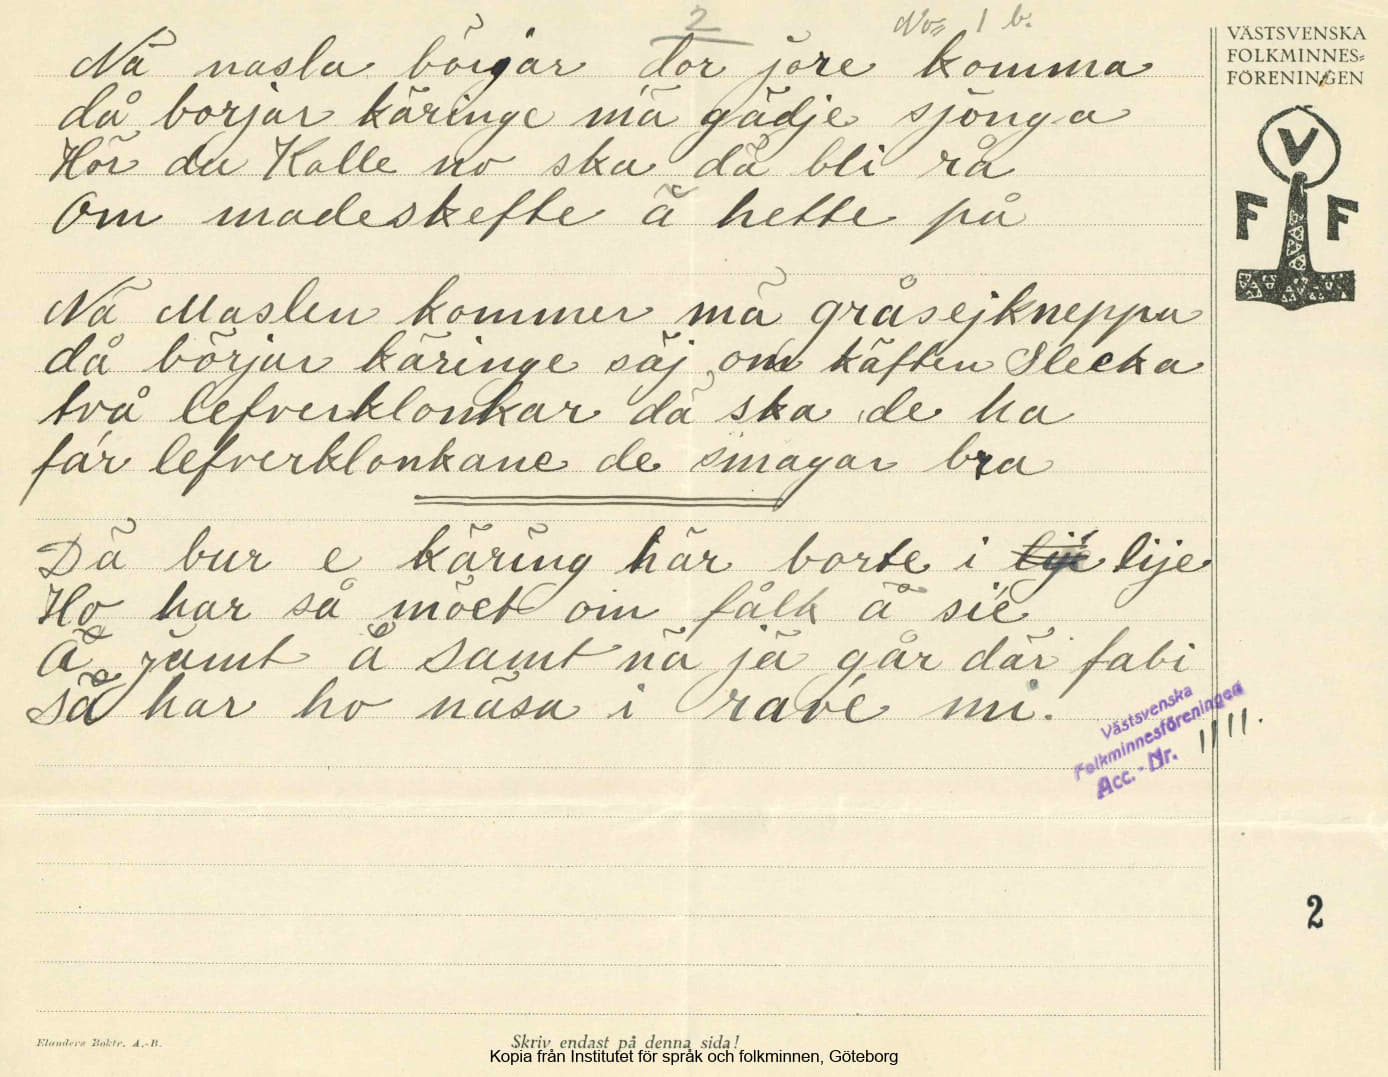 2
No 1 b.
VÄSTSVENSKA
FOLKMINNES=
FÖRENINGEN
Nä nasla börjar dör jöre komma
då börjar käringe mä gädje sjönga
Hör du Kalle no ska dä bli rå
Om madeskefte ä hette på
V
F F
Nä Maslen kommer mä gråsejkneppa
då börjar käringe säj om käften Slecka
två lefverklonkar dä ska de ha
får lefverklonkane de smagar bra
Dä bur e käring här borte i lije lije
Ho har så möet om fålk å sie
Å jämt å samt nä jä går där fabi
Så har ho näsa i ravé mi.
Västsvenska
Folkminnesföreningen
Acc.-Nr. 1111.
2
Elanders Boktr. A.-B.
Skriv endast på denna sida!
Kopia från Institutet för språk och folkminnen, Göteborg